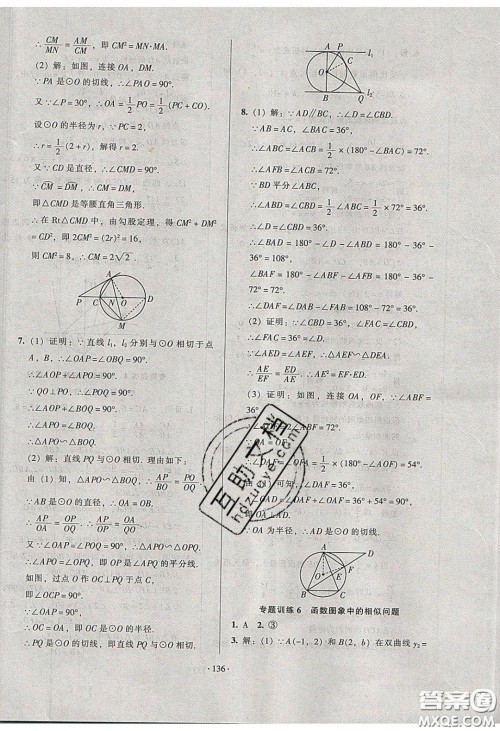 ∴CM/MN=AM/CM，即CM²=MN·MA.
(2)解：如图，连接OA，DM.
∵PA是⊙O的切线，∴∠PAO=90°.
又∵∠P=30°，∴OA=1/2PO=1/2(PC+CO).
设⊙O的半径为r，∵PC=2，
∴r=1/2(2+r)，解得r=2.
又∵CD是直径，∴∠CMD=90°.
∵CM=DM，∴CM=DM，
即△CMD是等腰直角三角形.
∴在Rt△CMD中，由勾股定理，得CM²+DM²
=CD²，即2CM²=(2r)²=16，
则CM²=8，∴CM=2√2.
A
P C N O D
M
7.(1)证明：∵直线l₁，l₂分别与⊙O相切于点
A，B，∴∠OAP=∠OBQ=90°.
∴∠OAP=90°.
∵QO⊥PO，∴∠POQ=90°，
∴∠AOP+∠BOQ=90°，
∴∠OAP=∠BOQ，
∴△APO∽△BOQ.
(2)解：直线PQ与⊙O相切.理由如下：
由(1)知，△APO∽△BOQ，∴AP/BO=PO/OQ.
∵AB是⊙O的直径，∴OA=OB.
∴AP/OA=PO/OQ，∴AP/OP=OA/OQ.
又∵∠OAP=∠POQ=90°，∴△APO∽△OPQ.
∴∠APO=∠OPQ，∴PO是∠APQ的平分线.
如图，过点O作OC⊥PQ于点C，
∵OA⊥AP，∠OAP=90°，
∴OC=OA，∴OC是⊙O的半径.
∴PQ是⊙O的切线，即直线PQ与⊙O相切.
A P l₁
C
O
B Q l₂
8.(1)解：∵AD∥BC，∴∠D=∠CBD.
∵AB=AC，∠BAC=36°，
∴∠ABC=1/2×(180°-∠BAC)=72°.
∴∠AFB=∠ABC=72°.
∵BD平分∠ABC，
∴∠ABD=∠CBD=1/2∠ABC=1/2×72°=36°.
∴∠D=∠CBD=36°.
∴∠BAD=180°-∠D-∠ABD=180°-36°-
36°=108°，
∠BAF=180°-∠ABF-∠AFB=180°-36°-
72°=72°.
∴∠DAF=∠DAB-∠FAB=108°-72°=36°.
(2)证明：∵∠CBD=36°，∠FAC=∠CBD，
∴∠FAC=36°=∠D.
∵∠AED=∠AEF，∴△AEF∽△DEA.
∴AE/EF=ED/AE，∴AE²=EF·ED.
(3)证明：如图，连接OA，OF，
∴OA⊥AD.
∵OA为半径，∴AD是⊙O的切线.
A D
F
O E
B C
专题训练6 函数图象中的相似问题
1. A 2. ③
3. 解：(1)∵A(-1，2)和B(2，b)在双曲线y₂=
· 136 ·
互助文档
hdzuoye.com
答案圈
MXQE.COM